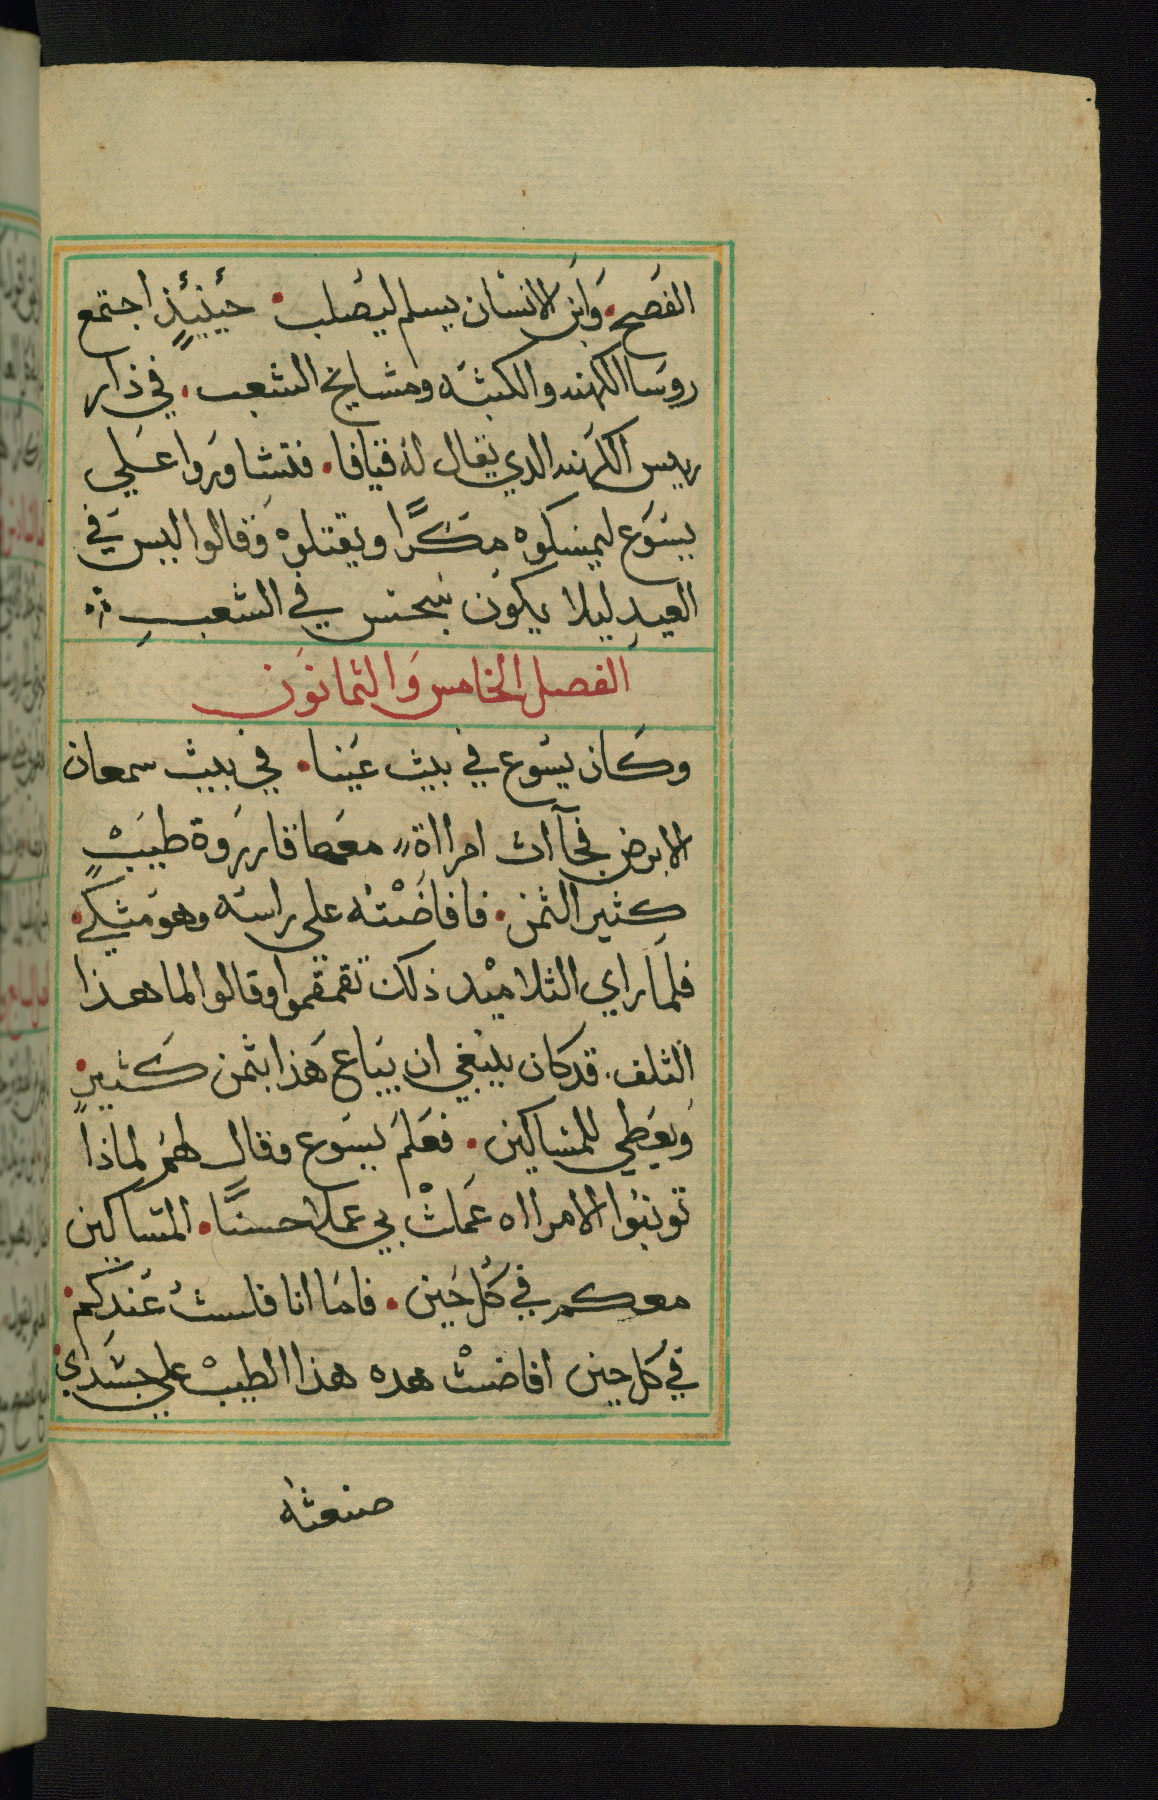 الفَصح. وَابن الانسَان يسلم ليصَلب. حيَنيئذٍ اجتمع
روسَا الكهنه والكبثَه ومشايخ الشعب. في ذار
ريس الكهَنه الدي يقال لهُ قيافا. فتشاورَوا عَلي
يسَوع ليمسكوه مَكرًا ويقتلوهُ وَقالوا ليس في
العيدِ ليلا يكون سَجس في الشعبِ
الفصل الخامس وَالثمانوَن
وكَان يسَوع في بيث عَينا. في بيث سمعان
الابرص فجآاث امرااة معَهاقاررَوة طيبٍ
كثير الثمن. فافاضَثه علي راسه وهوَمثكي.
فلمَا راي الثلاميْد ذلك تقمقموا وقالوا لما هذا
الثلف. قدكان يلبغي ان يبَاع هَذا بثمن كَثير.
وَيعَطي للمسَاكين. فعَلمَ يسَوع وقال لهمُ لماذا
تونبوا الامرااه عَملتْ بي عملا حسنًا. المسَاكين
معكم في كُل حَين. فامَا انا فلسثُ عَندكم.
في كل حين افاضتْ هده هذا الطيبْ علي جسَدي.
صنعثه